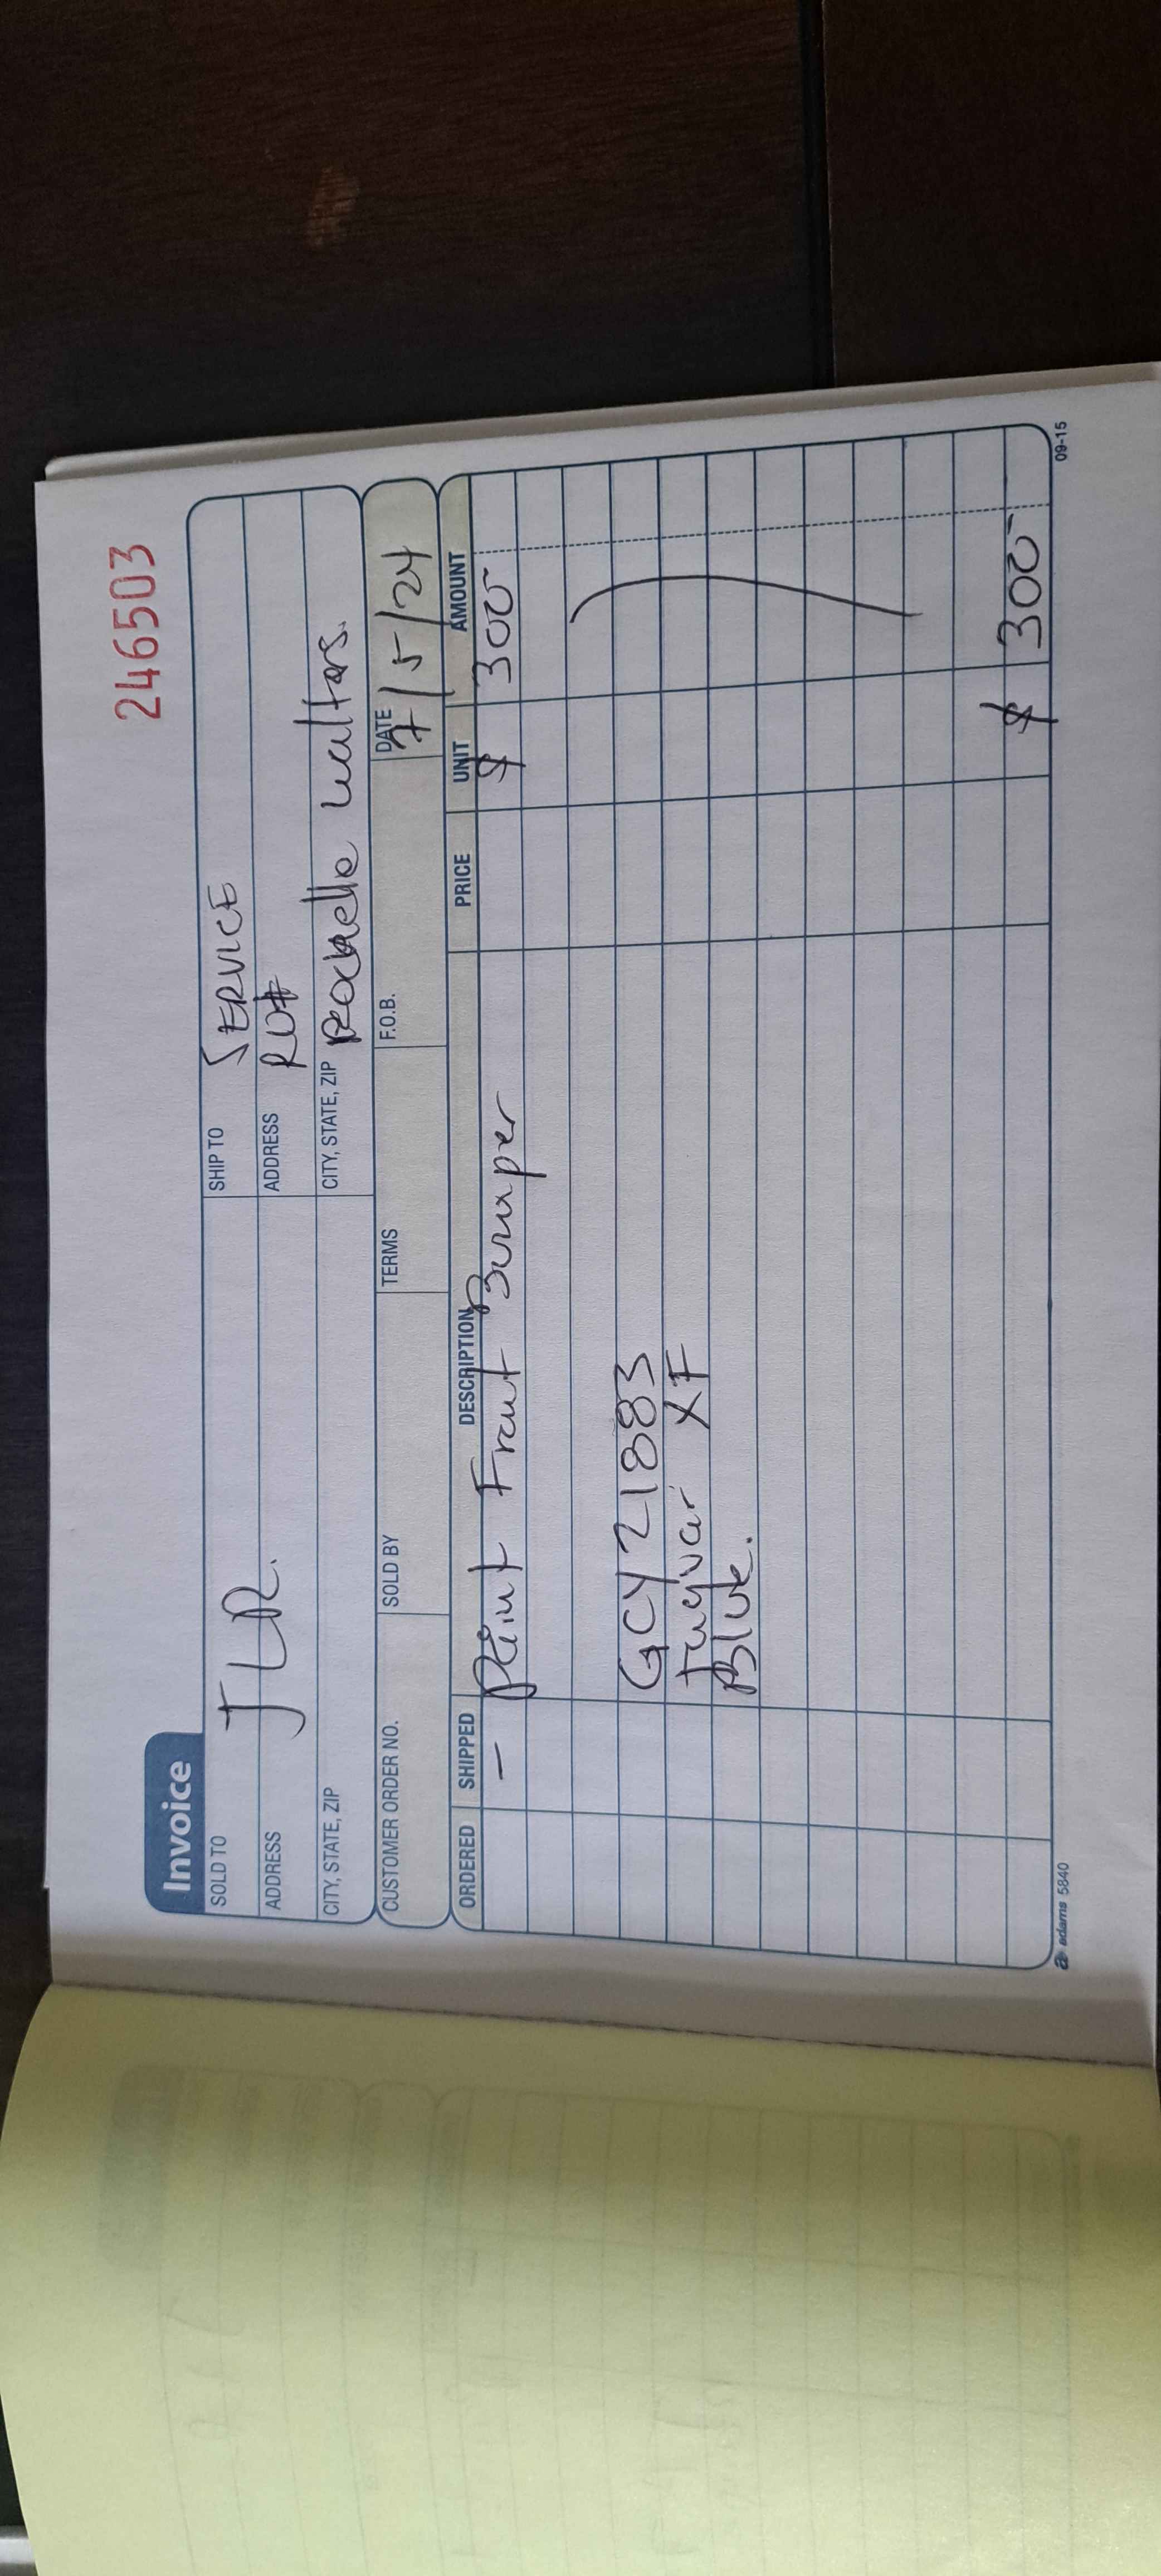 246503
Invoice
SOLD TO JLR. SHIP TO SERVICE
ADDRESS ADDRESS
CITY, STATE, ZIP CITY, STATE, ZIP Rochelle Walters.
CUSTOMER ORDER NO. SOLD BY TERMS F.O.B. DATE 7/5/24
ORDERED SHIPPED DESCRIPTION PRICE UNIT AMOUNT
— Paint Front Bumper $ 300
GCY21883
Jaguar XF
Blue.
$ 300
a adams 5840 09-15